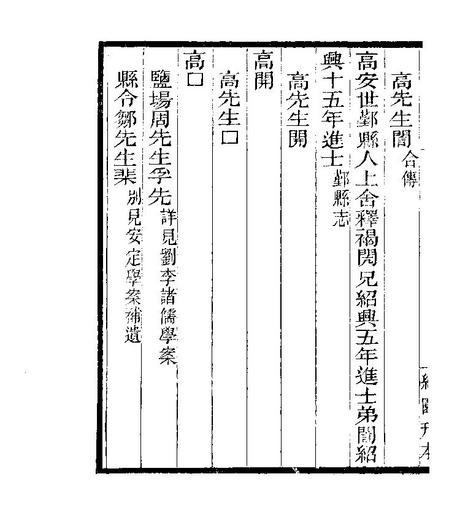 高先生誾合傳
高安世鄞縣人上舍釋褐閌兄紹興五年進士弟誾紹
興十五年進士鄞縣志
高先生開
高開
高先生□
高□
鹽場周先生孚先詳見劉李諸儒學案
縣令鄒先生棐別見安定學案補遺
約園刊本